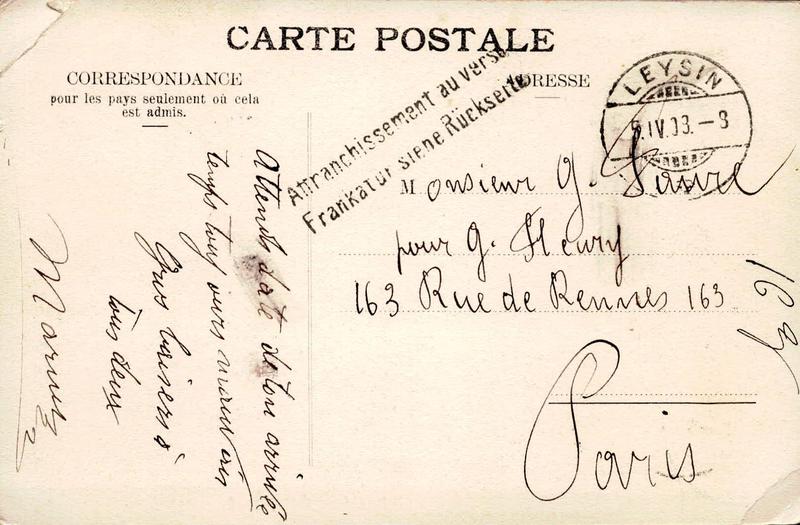 CARTE POSTALE
CORRESPONDANCE
pour les pays seulement où cela
est admis.
ADRESSE
Affranchissement au verso
Frankatur siehe Rückseite
LEYSIN
5.IV.03.–8
Monsieur G. Favre
pour G. Fleury
163 Rue de Rennes 163
163
Paris
Attends date de ton arrivée
temps toujours mauvais
Gros baisers à
tous deux